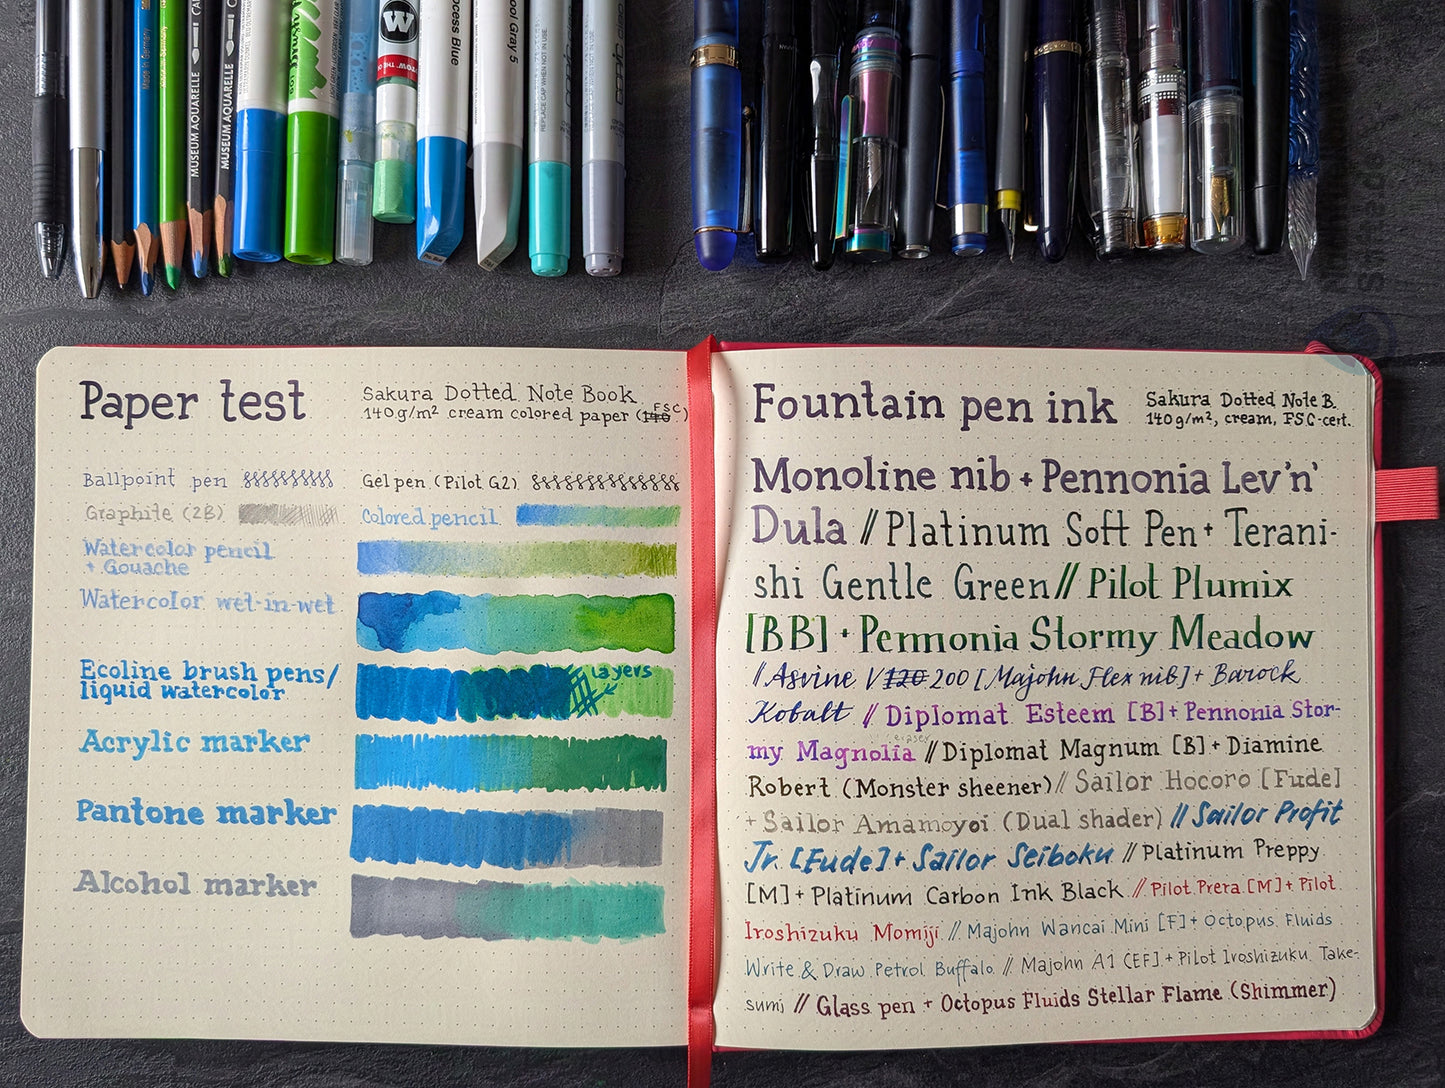 Made in Germany
MUSEUM AQUARELLE
MUSEUM AQUARELLE
W
ocess Blue
ool Gray 5
REPLACE CAP WHEN NOT IN USE.
Paper test
Sakura Dotted Note Book
140 g/m² cream colored paper (140 FSC)
Ballpoint pen
Gel pen (Pilot G2)
Graphite (2B)
Colored pencil
Watercolor pencil
+ Gouache
Watercolor wet-in-wet
Ecoline brush pens/
liquid watercolor
layers
Acrylic marker
Pantone marker
Alcohol marker
Fountain pen ink
Sakura Dotted Note B.
140 g/m², cream, FSC-cert.
Monoline nib + Pennonia Lev'n'
Dula // Platinum Soft Pen + Terani-
shi Gentle Green // Pilot Plumix
[BB] + Pennonia Stormy Meadow
// Asvine V 120 200 [Majohn Flex nib] + Barock
Kobalt // Diplomat Esteem [B] + Pennonia Stor-
my Magnolia // Diplomat Magnum [B] + Diamine
eraser
Robert (Monster sheener) // Sailor Hocoro [Fude]
+ Sailor Amamoyoi (Dual shader) // Sailor Profit
Jr. [Fude] + Sailor Seiboku // Platinum Preppy
[M] + Platinum Carbon Ink Black // Pilot Prera [M] + Pilot
Iroshizuku Momiji // Majohn Wancai Mini [F] + Octopus Fluids
Write & Draw Petrol Buffalo // Majohn A1 [EF] + Pilot Iroshizuku Take-
sumi // Glass pen + Octopus Fluids Stellar Flame (Shimmer)